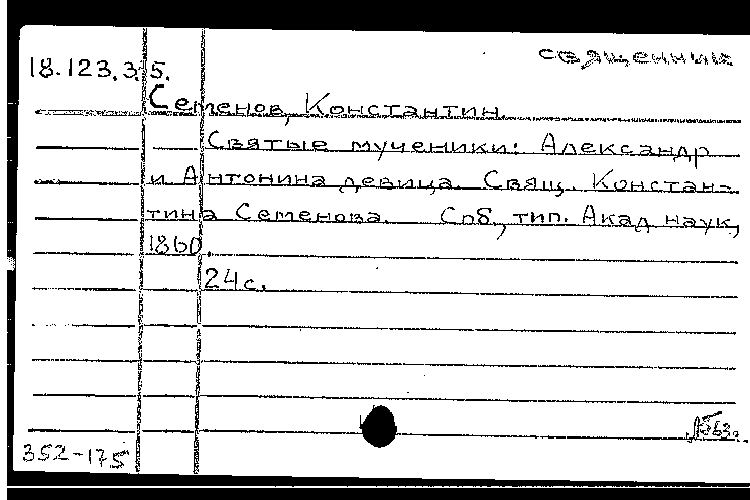 священник
18.123.3.5.
Семенов, Константин.
Святые мученики: Александр
и Антонина девица. Свящ. Констан-
тина Семенова. Спб, тип. Акад наук,
1860.
24 с.
352-175